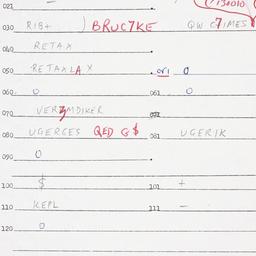 021
030 RIB+ ) BRUC7KE QW C7IMES
040 RETAX
050 RETAXLAX . 051 0
060 0 061 0
070 VER3MDIKER
080 UGERCES QED G$ 081 UGERIK
090 0 .
100 $ 101 +
110 KEPL 111 -
120 0